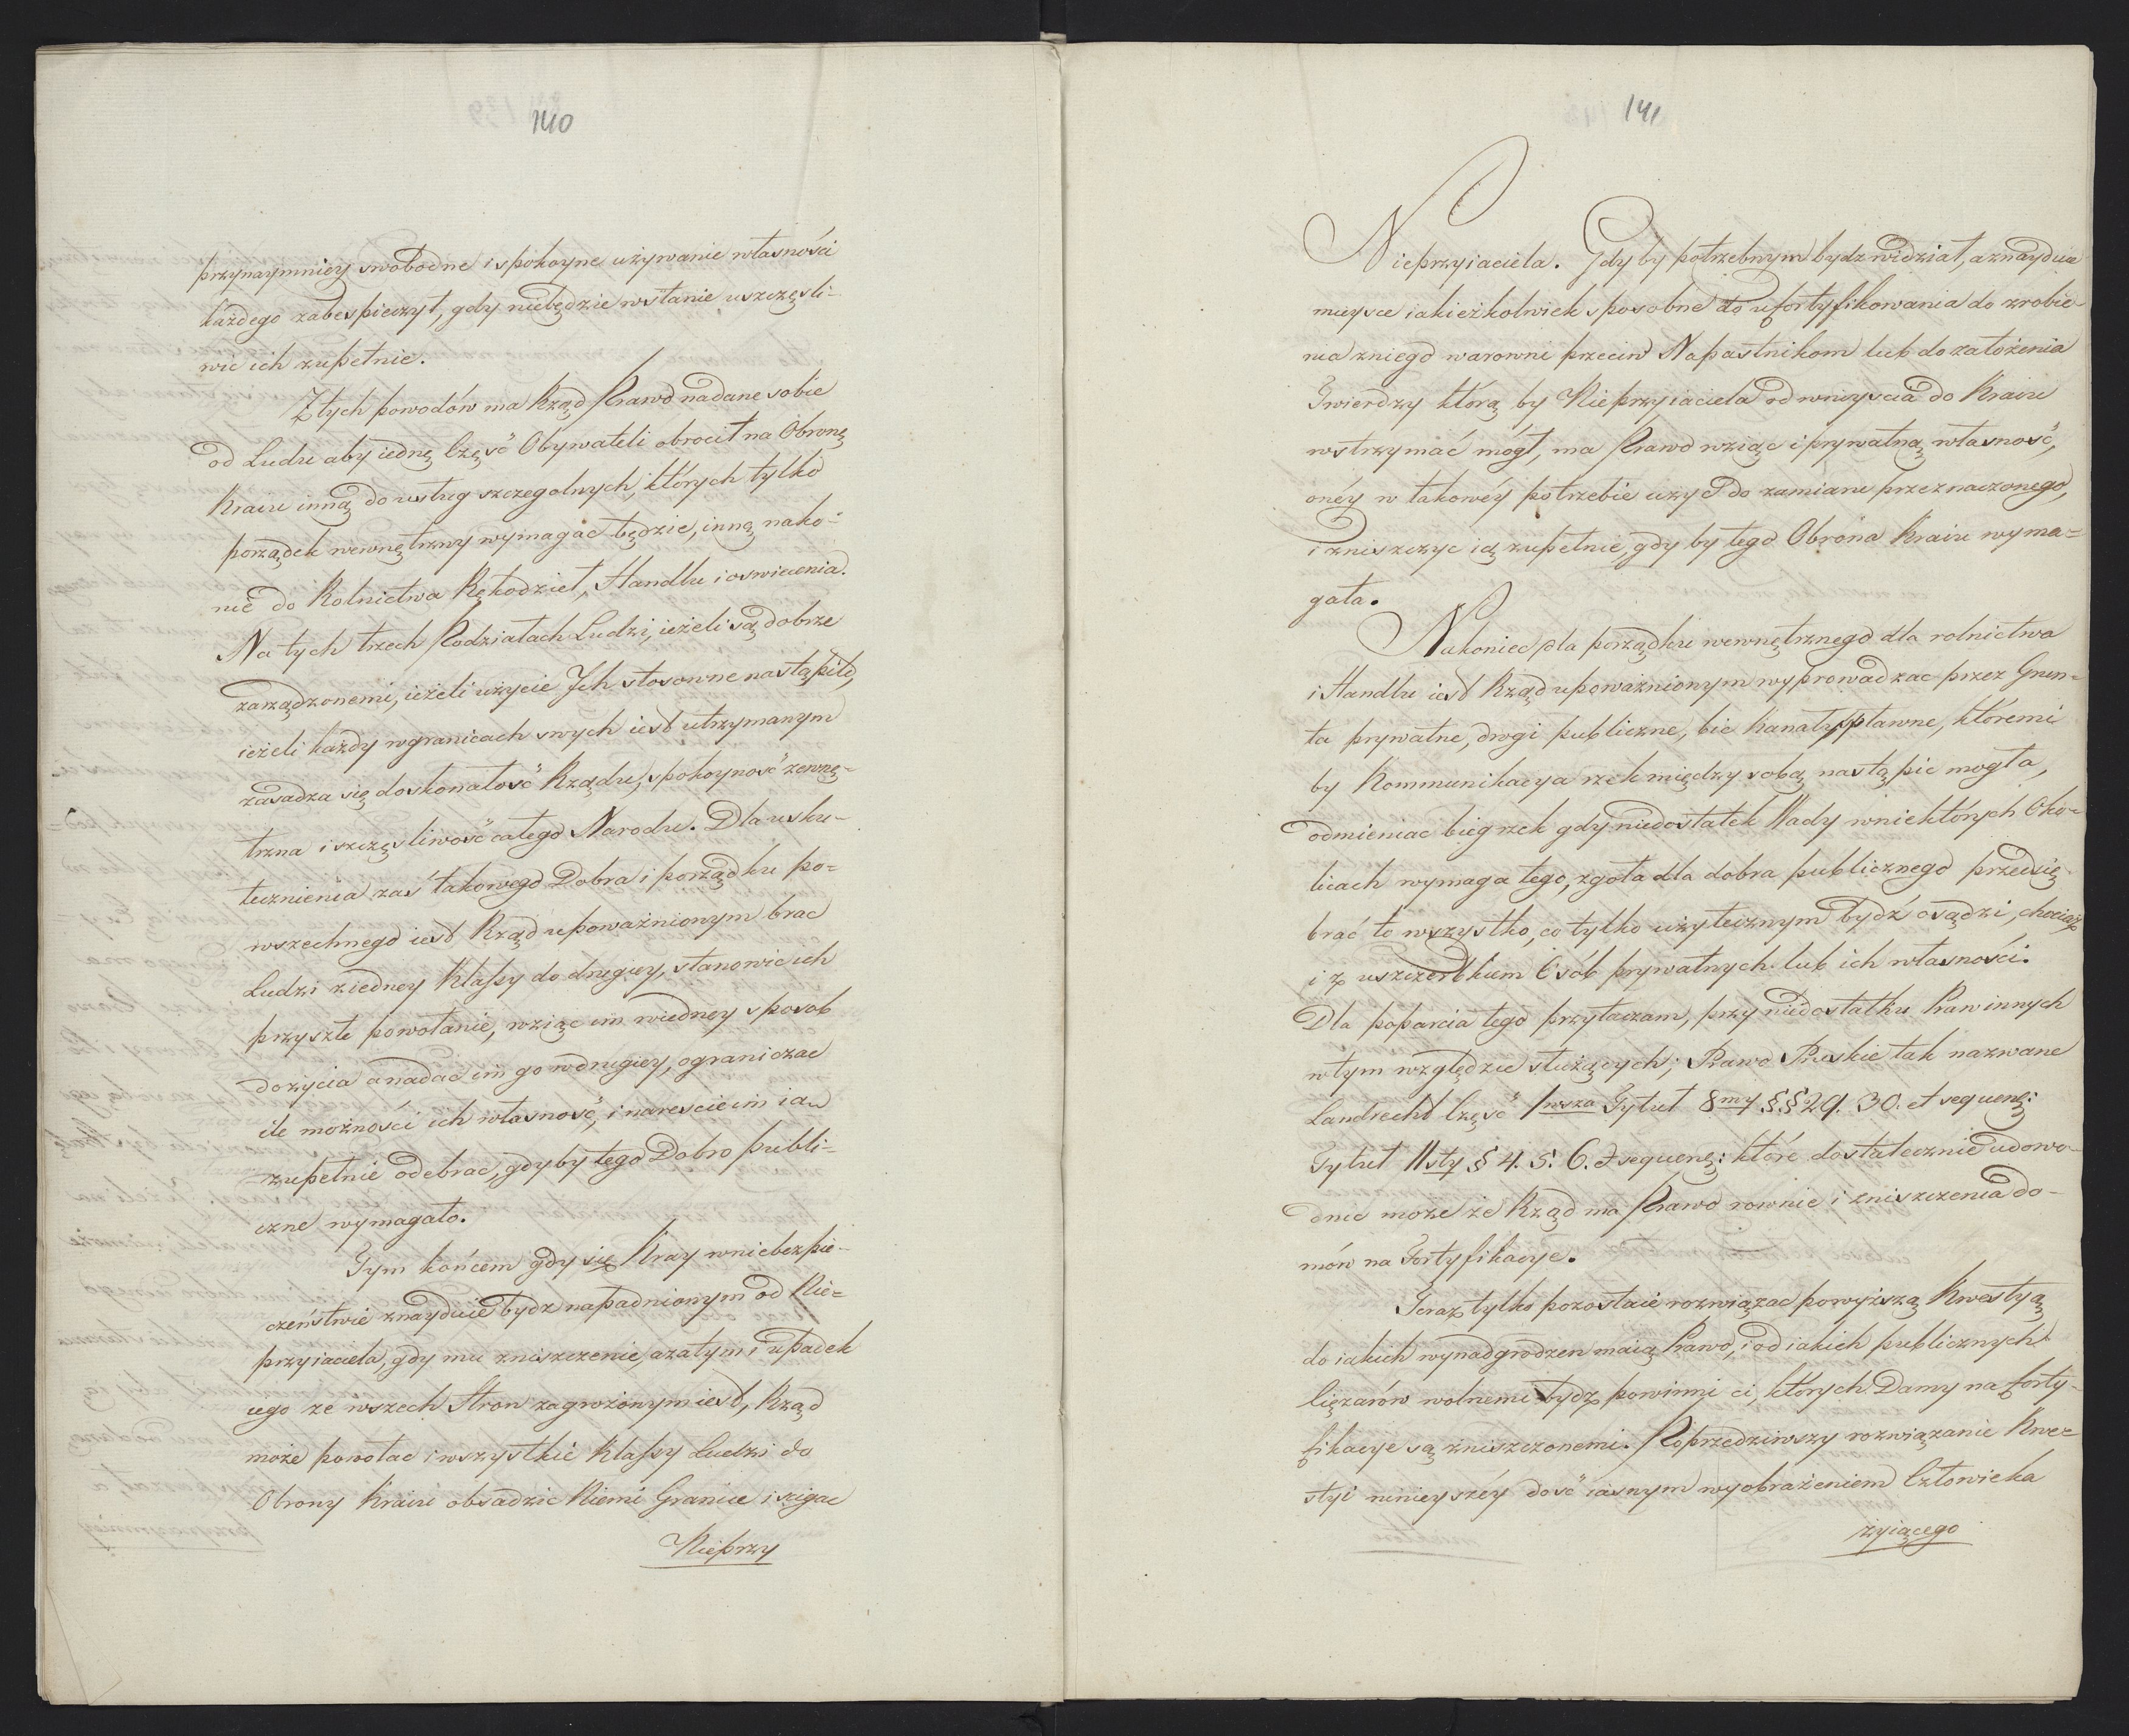 140
przynaymniey swobodne i spokoyne używanie własności
każdego zabespieczył, gdy niebędzie wstanie uszczęśli-
wić ich zupełnie.
Z tych powodów ma Rząd Prawo nadane sobie
od Ludu aby iedną Część Obywateli obrocił na Obronę
Kraiu inną do usług szczegolnych, których tylko
porządek wewnętrzny wymagac będzie, inną nako-
nie do Rolnictwa Rękodzieł, Handlu i oswiecenia.
Na tych trzech Podziałach Ludzi, ieżeli są dobrze
zarządzonemi, ieżeli użycie Jch stosowne nastąpiło,
ieżeli każdy wgranicach swych iest utrzymanym
zasadza się doskonałość Rządu, spokoyność zewnę-
trzna i szczęsliwość całego Narodu. Dla usku-
tecznienia zaś takowego Dobra i porządku po-
wszechnego iest Rząd upoważnionym brac
Ludzi ziedney Klassy do drugiey, stanowic ich
przyszłe powołanie, wziąc im wiedney sposob
do życia a nadac im go wdrugiey, ograniczac
ile możności ich własność, i nareście im ią
zupełnie odebrac, gdyby tego Dobro publi-
czne wymagało.
Tym końcem gdy się Kray wniebezpie-
czeństwie znayduie bydz napadnionym od Nie-
przyiaciela, gdy mu zniszczenie, a zatym i upadek
iego ze wszech Stron zagrożonym iest, Rząd
może powołac i wszystkie Klassy Ludzi do
Obrony Kraiu obsadzic Niemi Granice i scigac
Nieprzy
141
Nieprzyiaciela. Gdy by potrzebnym bydz widział, a znayduie
mieysce iakieżkolwiek sposobne do ufortyfikowania do zrobie-
nia zniego warowni przeciw Napastnikom lub do założenia
Twierdzy którą by Nieprzyiaciela od wniyscia do Kraiu
wstrzymać mógł, ma Prawo wziąc i prywatną własność,
onéy w takowéy potrzebie użyc do zamiaru przeznaczonego,
i zniszczyc ią zupełnie, gdy by tego Obrona Kraiu wyma-
gała.
Nakoniec dla porządku wewnętrznego dla rolnictwa
i Handlu iest Rząd upoważnionym wyprowadzac przez Grun-
ta prywatne, drogi publiczne, bic Kanały spławne, któremi
by Kommunikacya rzek między sobą nastąpic mogła,
odmieniac bieg rzek gdy niedostatek Wady wniektórych Oko-
licach wymaga tego, zgoła dla dobra publicznego przedsię-
brać to wszystko, co tylko użytecznym bydź osądzi, chociaż
i z uszczerbkiem Osób prywatnych lub ich własności.
Dla poparcia tego przytaczam, przy niedostatku Praw innych
wtym względzie służących; Prawo Pruskie tak nazwane
Landrecht Część 1wsza Tytuł 8my §.§ 29. 30. et sequenẽ:
Tytuł 11sty § 4. 5. 6. et sequenẽ: które dostatecznie udowo-
dnic może że Rząd ma Prawo rownie i zniszczenia do-
mów na Fortyfikacye.
Teraz tylko pozostaie rozwiązac powyższą Kwestyą
do iakich wynadgrodzen maią Prawo, i od iakich publicznych
Ciężarów wolnemi bydz powinni ci, których Domy na forty-
fikacye są zniszczonemi. Poprzedziwszy rozwiązanie Kwe-
styi ninieyszéy dość iasnym wyobrażeniem Człowieka
żyiącego